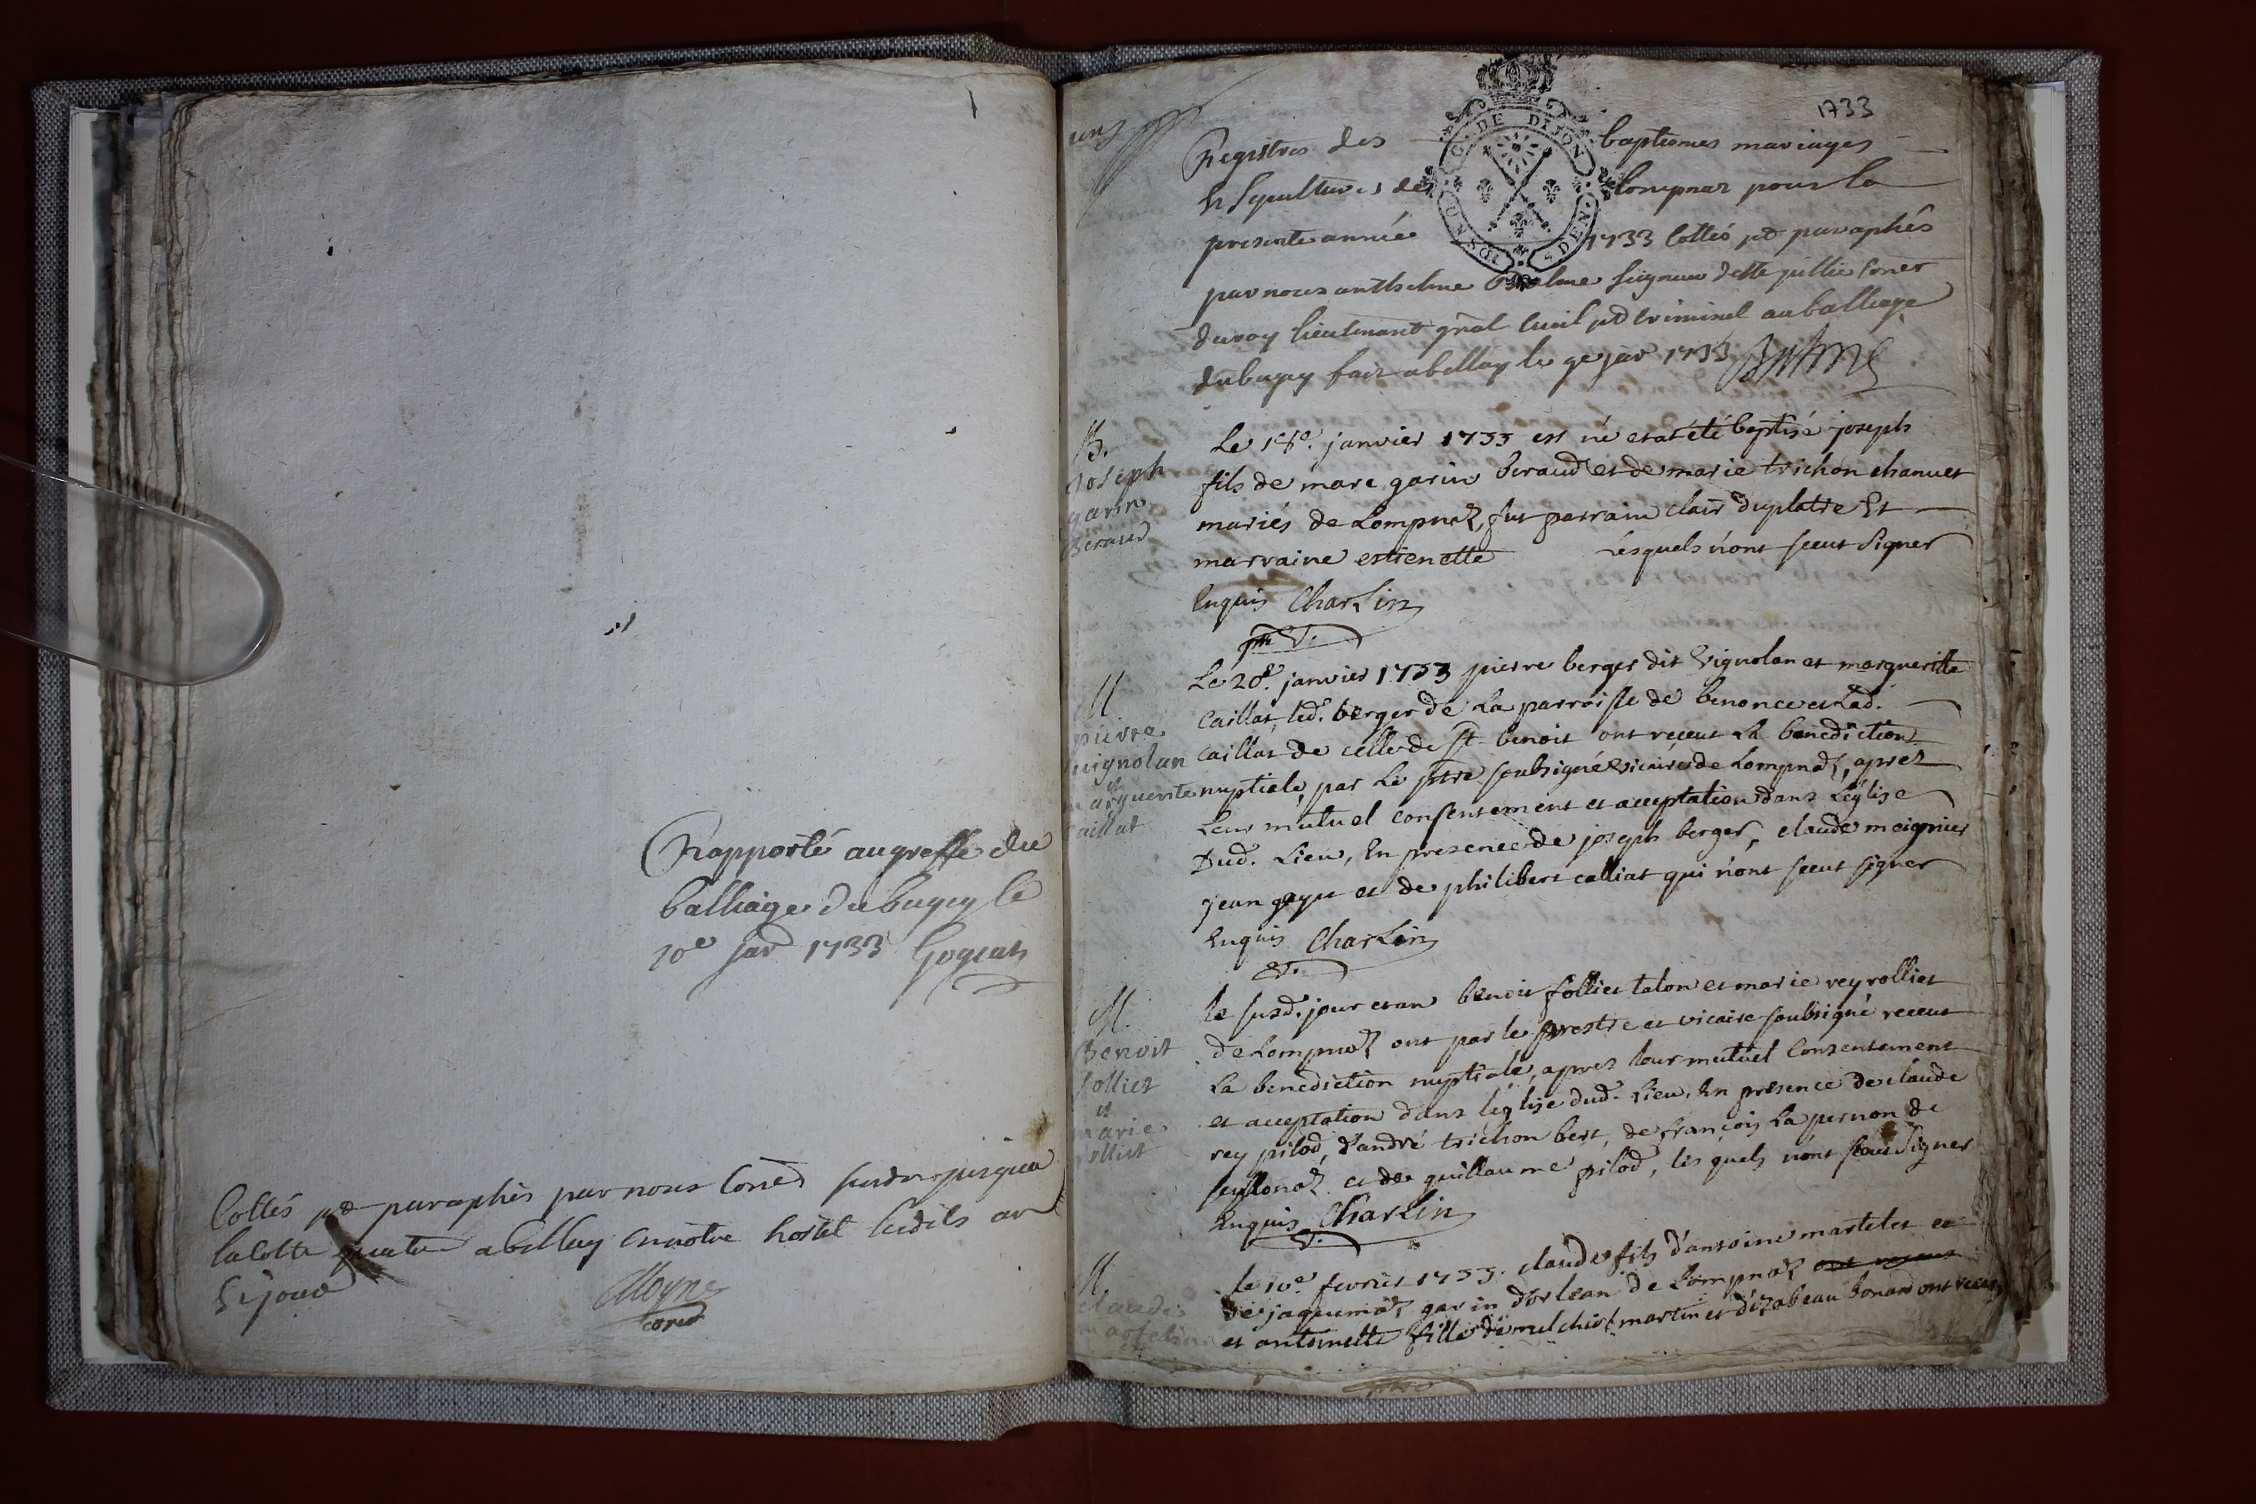 Rapporté au greffe du
balliage du bugey le
20e jav 1733
Collés et paraphés par nous
la cotte quatre a bellay en notre hostel lesdits an
et jour
1733
G. DE DIJON
Registres des baptemes mariages
et sepultures de Lompnaz pour la
presente année 1733 Cottés et paraphés
par nous anthelme seigneur
du roy lieutenant gnal civil et criminel au balliage
du bugey fait a bellay le 9e jav 1733
B.
joseph
garin
Beraud
Le 18e. janvier 1733 est né et at été baptisé joseph
fils de marc garin beraud et de marie trichon chanuet
mariés de Lompnaz, fut parrain clair duplatre Et
marraine estienette Lesquels n'ont sceut signer
Enquis Charlin
M
pierre
vignolan
et
marguerite
caillat
Le 20e. janvier 1733 pierre berger dit vignolan et margueritte
Caillat, led. berger de La parroisse de benonce et Lad.
caillat de celle de st benoit ont receut La benediction
nuptiale, par Le ptre soubsigné vicaire de Lompnaz, aprez
Leur mutuel consentement et acceptation dans L'église
Dud. Lieu, En presence de joseph berger, claude meignier
jean et de philibert calliat qui n'ont sceut signer
Enquis Charlin
M.
Benoit
folliet
et
marie
Le susd. jour et an benoit folliet talon et marie reyrolliet
de Lompnaz ont par le prestre et vicaire soubsigné receut
La benediction nuptiale, apres leur mutuel Consentement
et acceptation dans l'eglise dud. Lieu, En presence de claude
rey pilod, d'andré trichon bert, de françois La pernon de
seyllonaz et de guillaume pilod, lesquels n'ont sceut signer
Enquis Charlin
M.
claude
martelin
le 10e. fevrier 1733. claude fils d'antoine martelet et
de jaquemaz garin d'orlean de Lompnaz
et antoinette fille de melchior martin et d'izabeau bonard ont receut